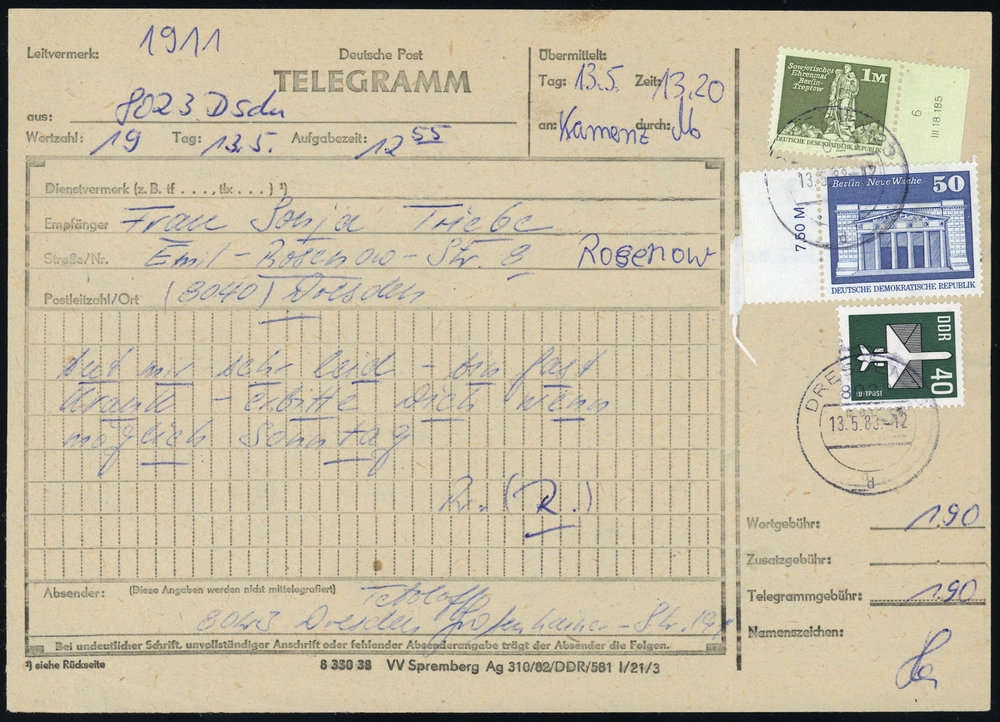 Leitvermerk: 1911
Deutsche Post
TELEGRAMM
aus: 8023 Dsdn
Wortzahl: 19 Tag: 13.5. Aufgabezeit: 12 55
Übermittelt:
Tag: 13.5. Zeit: 13.20
an: Kamenz durch:
Dienstvermerk (z. B. tf . . . , tlx . . . ) ¹)
Empfänger Frau Sonja Triebe
Straße/Nr. Emil-Rosenow-Str. 8 Rosenow
Postleitzahl/Ort (8040) Dresden
tut mir sehr leid - bin fast
krank - erbitte Dich wenn
möglich Sonntag
(R.)
Absender: (Diese Angaben werden nicht mittelegrafiert)
8023 Dresden Großenhainer-Str.
Bei undeutlicher Schrift, unvollständiger Anschrift oder fehlender Absenderangabe trägt der Absender die Folgen.
¹) siehe Rückseite
8 330 38 VV Spremberg Ag 310/82/DDR/581 I/21/3
Sowjetisches
Ehrenmal
Berlin-
Treptow
1M
DEUTSCHE DEMOKRATISCHE REPUBLIK
6
III 18 185
7,50 M
Berlin · Neue Wache 50
DEUTSCHE DEMOKRATISCHE REPUBLIK
DDR
40
LUFTPOST
DRESDEN
13.5.83.-12
Wortgebühr: 1.90
Zusatzgebühr:
Telegrammgebühr: 1.90
Namenszeichen: